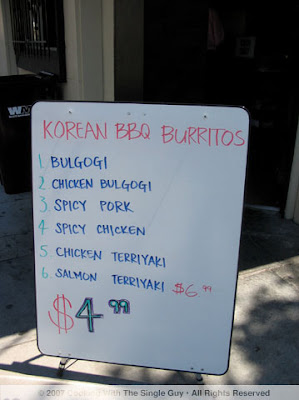 WM
KOREAN BBQ BURRITOS
1. BULGOGI
2. CHICKEN BULGOGI
3. SPICY PORK
4. SPICY CHICKEN
5. CHICKEN TERRIYAKI
6. SALMON TERRIYAKI $6.99
$4.99
© 2007 Cooking With The Single Guy • All Rights Reserved